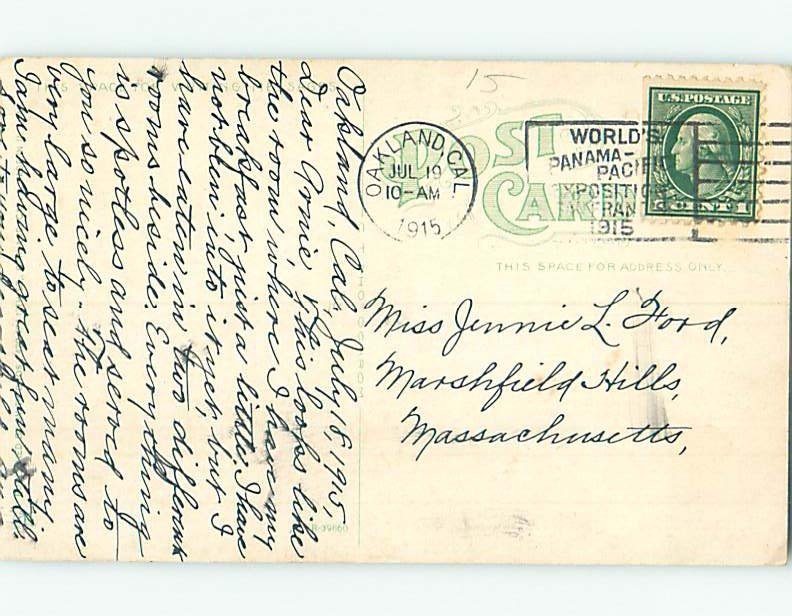 15
POST
CARD
THIS SPACE FOR ADDRESS ONLY.
OAKLAND, CAL.
JUL 19
10-AM
1915
WORLD'S
PANAMA-
PACIFIC
EXPOSITION
FRAN
1915
U.S. POSTAGE
CENT
Miss Jennie L. Ford,
Marshfield Hills,
Massachusetts,
Oakland, Cal., July 18, 1915,
Dear This looks like
the room where I have my
breakfast, just a little. I have
not been into it yet, but I
have eaten in two different
rooms beside. Everything
is spotless and served to
you so nicely. The rooms are
very large to seat many.
I am having great fun with
R-39860